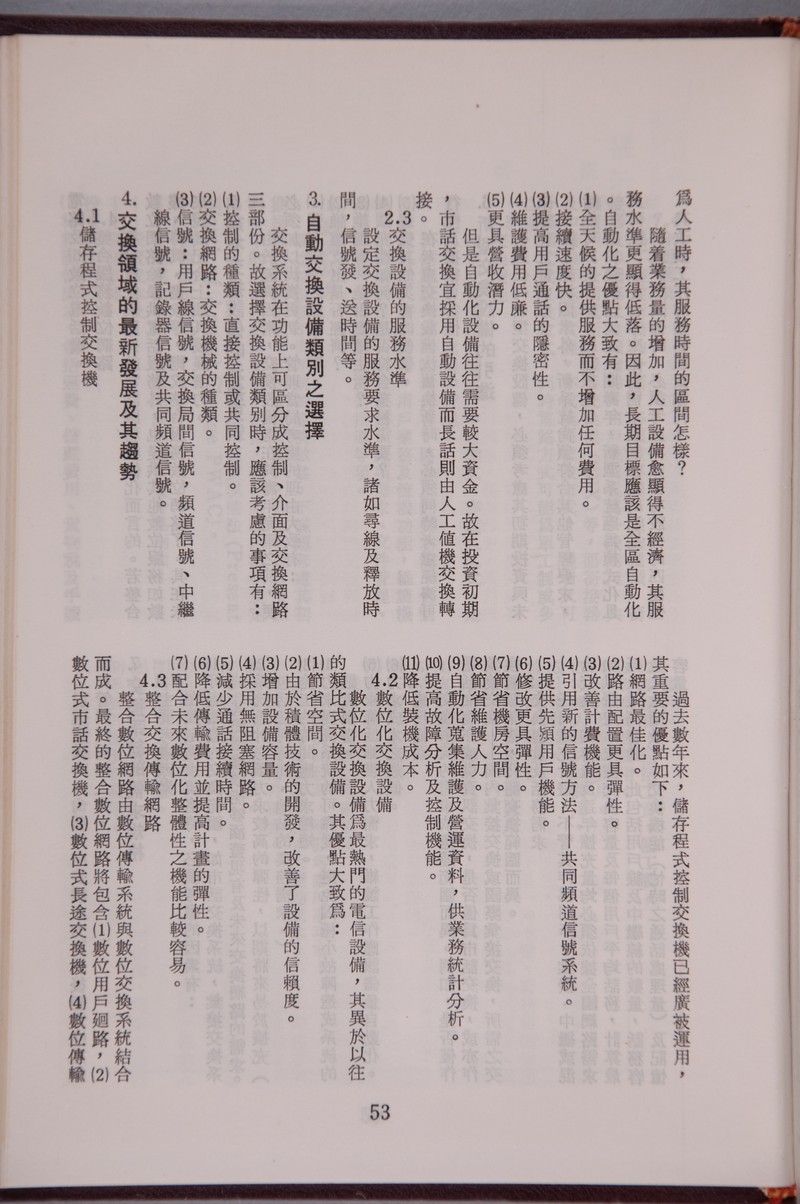 爲人工時，其服務時間的區間怎樣？
隨着業務量的增加，人工設備愈顯得不經濟，其服
務水準更顯得低落。因此，長期目標應該是全區自動化
。自動化之優點大致有：
⑴全天候的提供服務而不增加任何費用。
⑵接續速度快。
⑶提高用戶通話的隱密性。
⑷維護費用低廉。
⑸更具營收潛力。
但是自動化設備往往需要較大資金。故在投資初期
，市話交換宜採用自動設備而長話則由人工值機交換轉
接。
2.3交換設備的服務水準
設定交換設備的服務要求水準，諸如尋線及釋放時
間，信號發、送時間等。
3. 自動交換設備類別之選擇
交換系統在功能上可區分成控制、介面及交換網路
三部份。故選擇交換設備類別時，應該考慮的事項有：
⑴控制的種類：直接控制或共同控制。
⑵交換網路：交換機械的種類。
⑶信號：用戶線信號，交換局間信號，頻道信號、中繼
線信號，記錄器信號及共同頻道信號。
4. 交換領域的最新發展及其趨勢
4.1儲存程式控制交換機
過去數年來，儲存程式控制交換機已經廣被運用，
其重要的優點如下：
⑴網路最佳化。
⑵路由配置更具彈性。
⑶改善計費機能。
⑷引用新的信號方法——共同頻道信號系統。
⑸提供先頴用戶機能。
⑹修改更具彈性。
⑺節省機房空間。
⑻節省維護人力。
⑼自動化蒐集維護及營運資料，供業務統計分析。
⑽提高故障分析及控制機能。
⑾降低裝機成本。
4.2數位化交換設備
數位化交換設備爲最熱門的電信設備，其異於以往
的類比式交換設備。其優點大致爲：
⑴節省空間。
⑵由於積體技術的開發，改善了設備的信賴度。
⑶增加設備容量。
⑷採用無阻塞網路。
⑸減少通話接續時間。
⑹降低傳輸費用並提高計畫的彈性。
⑺配合未來數位化整體性之機能比較容易。
4.3整合交換傳輸網路
整合數位網路由數位傳輸系統與數位交換系統結合
而成。最終的整合數位網路將包含⑴數位用戶廻路，⑵
數位式市話交換機，⑶數位式長途交換機，⑷數位傳輸
53